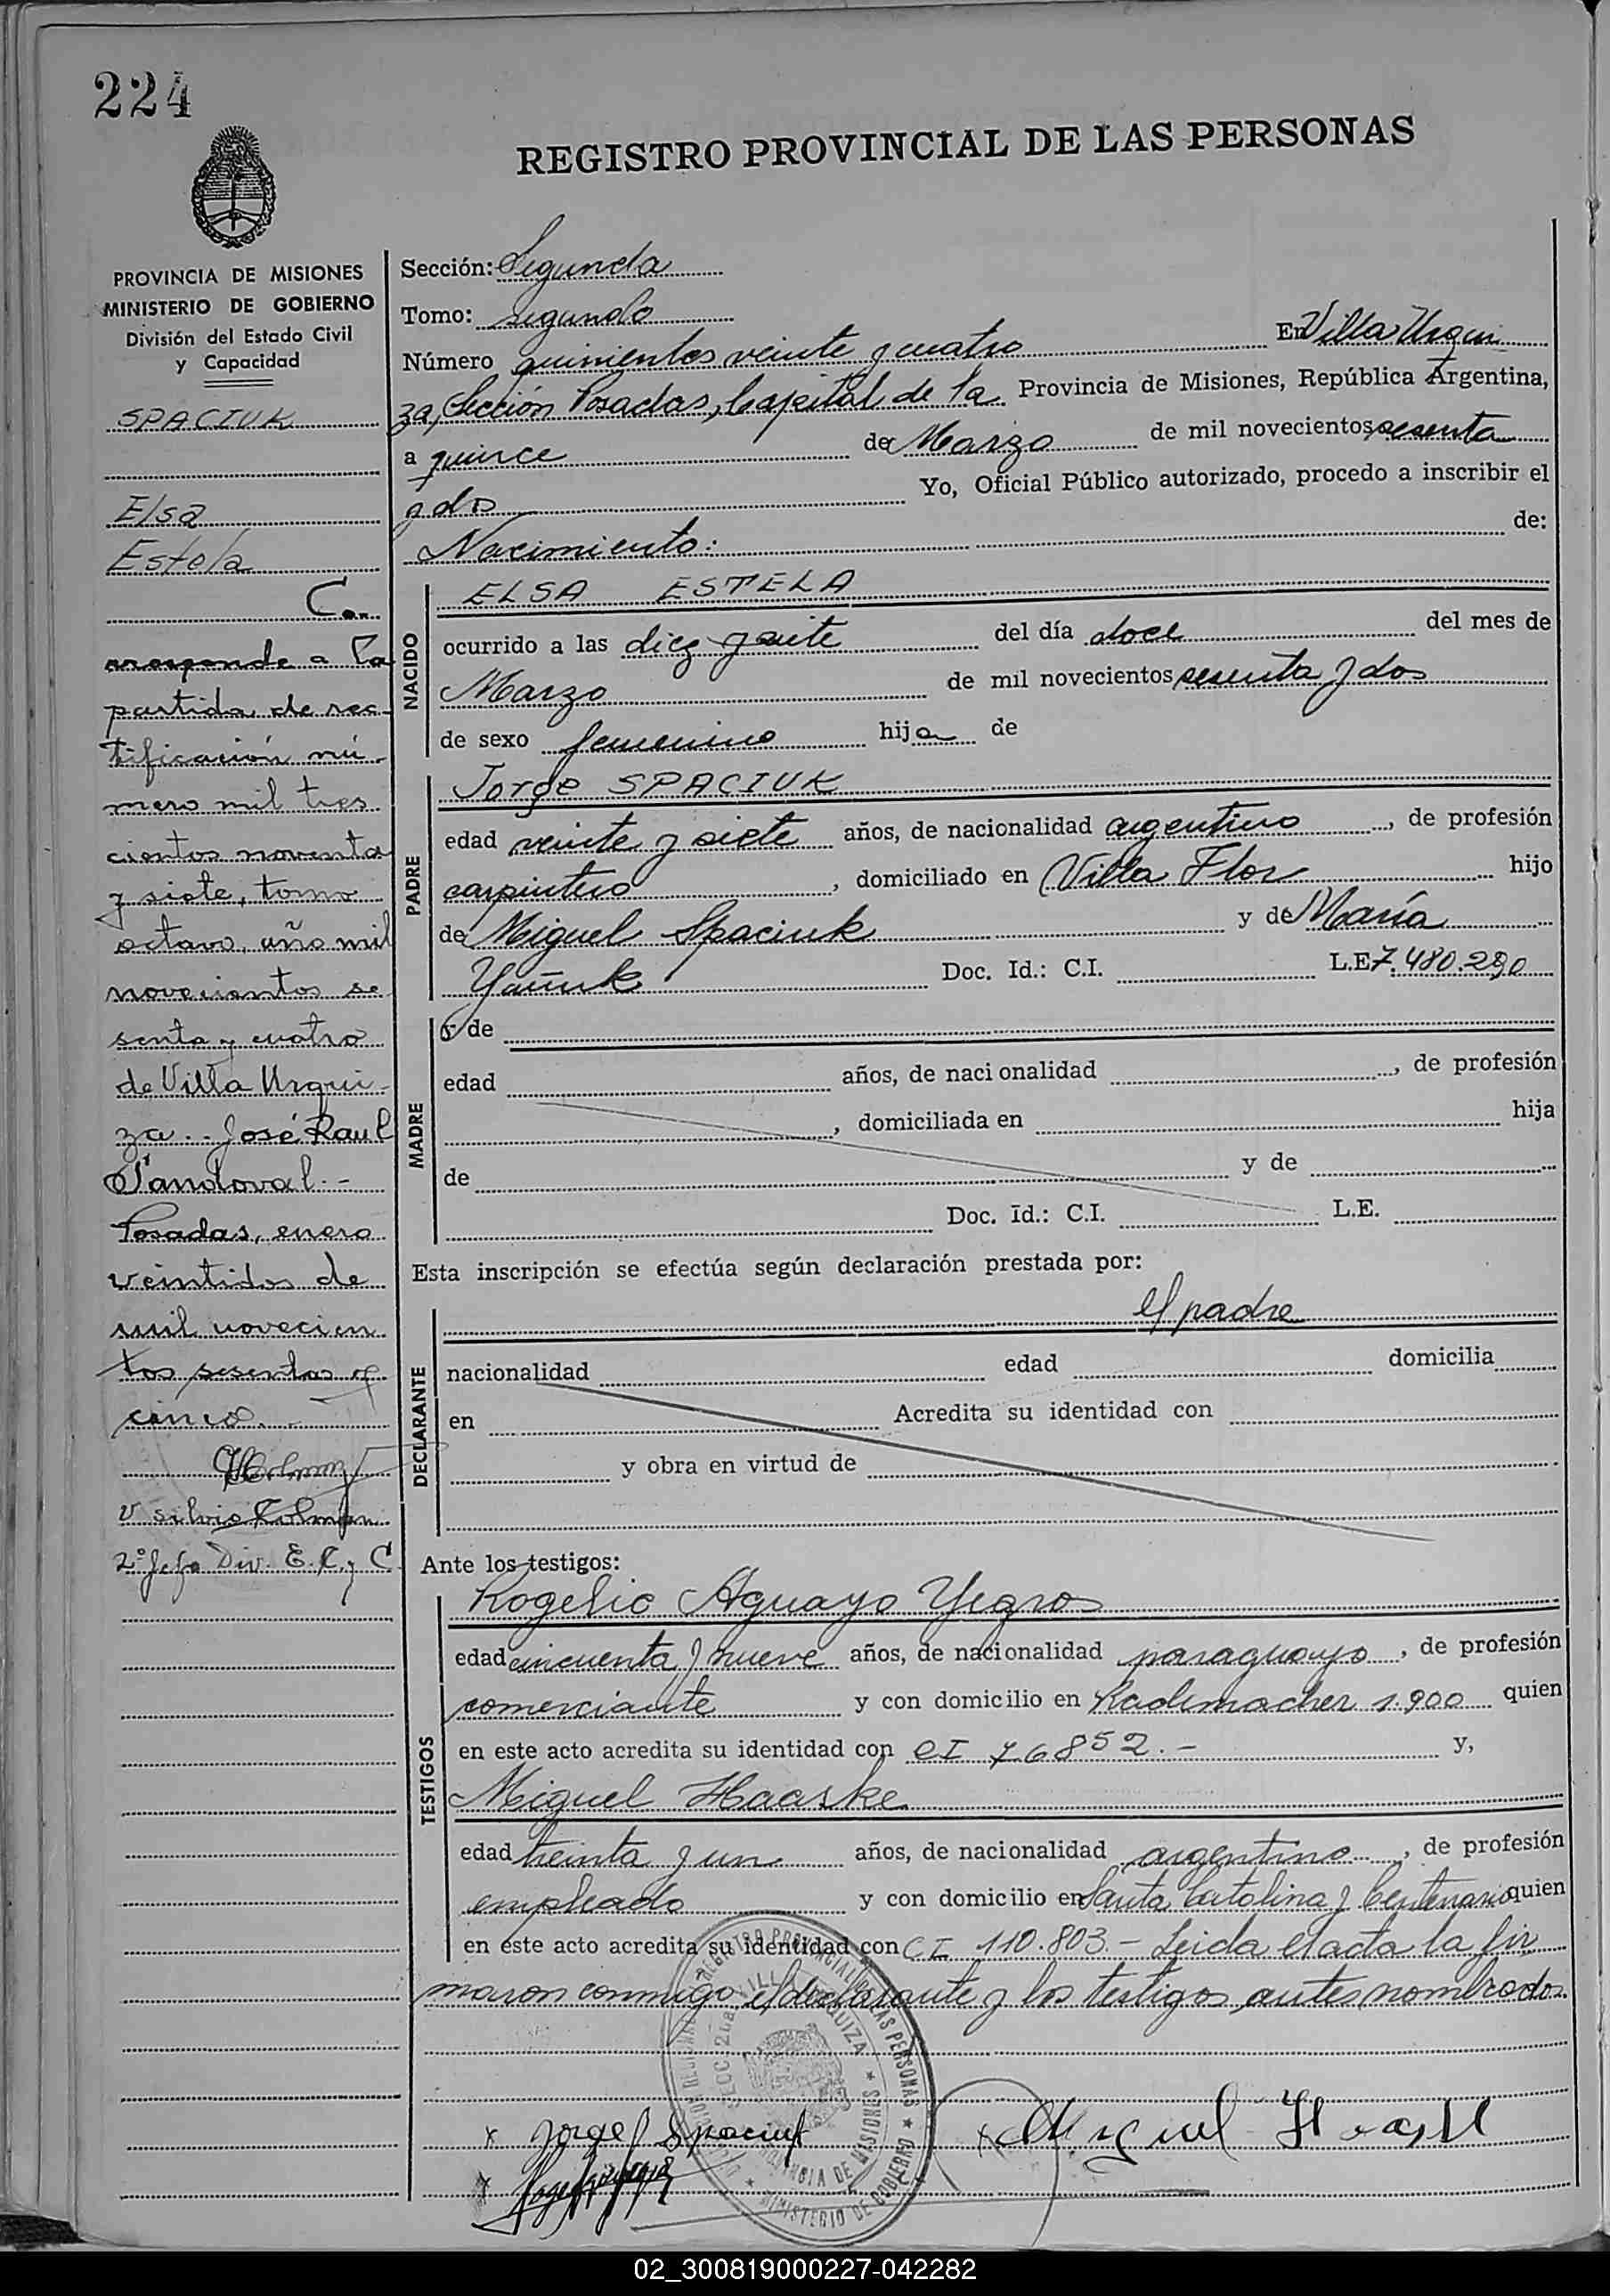 224
REGISTRO PROVINCIAL DE LAS PERSONAS
PROVINCIA DE MISIONES
MINISTERIO DE GOBIERNO
División del Estado Civil
y Capacidad
SPACIUK
Elsa
Estela
Co-
rresponde a la
partida de rec-
tificación nú-
mero mil tres
cientos noventa
y siete, tomo
octavo, año mil
novecientos se
senta y cuatro
de Villa Urqui-
za.- José Raul
Sandoval.-
Posadas, enero
veintidos de
mil novecien
tos sesenta y
cinco.-
V Silvio Kolman
2º Jefe Div. E. C. y C.
Sección: Segunda
Tomo: segundo
Número quinientos veinte y cuatro En Villa Urqui
za, Sección Posadas, Capital de la Provincia de Misiones, República Argentina,
a quince de Marzo de mil novecientos sesenta
y dos Yo, Oficial Público autorizado, procedo a inscribir el
Nacimiento: de:
NACIDO
ELSA ESTELA
ocurrido a las diez y siete del día doce del mes de
Marzo de mil novecientos sesenta y dos
de sexo femenino hija de
PADRE
Jorge SPACIUK
edad veinte y siete años, de nacionalidad argentino, de profesión
carpintero, domiciliado en Villa Flor hijo
de Miguel Spaciuk y de María
Doc. Id.: C.I. L.E 7.480.290
MADRE
y de
edad años, de nacionalidad , de profesión
, domiciliada en hija
de y de
Doc. Id.: C.I. L.E.
Esta inscripción se efectúa según declaración prestada por:
DECLARANTE
el padre
nacionalidad edad domicilia
en Acredita su identidad con
y obra en virtud de
Ante los testigos:
TESTIGOS
Rogelio Aguayo Yegros
edad cincuenta y nueve años, de nacionalidad paraguayo, de profesión
comerciante y con domicilio en Rademacher 1.900 quien
en este acto acredita su identidad con CI 76852.- y,
Miguel Haaske
edad treinta y un años, de nacionalidad argentino, de profesión
empleado y con domicilio en Santa Catalina y Centenario quien
en este acto acredita su identidad con CI 110.803.- Leida el acta la fir
maron conmigo, el declarante y los testigos antes nombrados.
REGISTRO PROVINCIAL DE LAS PERSONAS
MINISTERIO DE GOBIERNO
PROVINCIA DE MISIONES
x Jorge Spaciuk
x Miguel Haaske
02_300819000227-042282